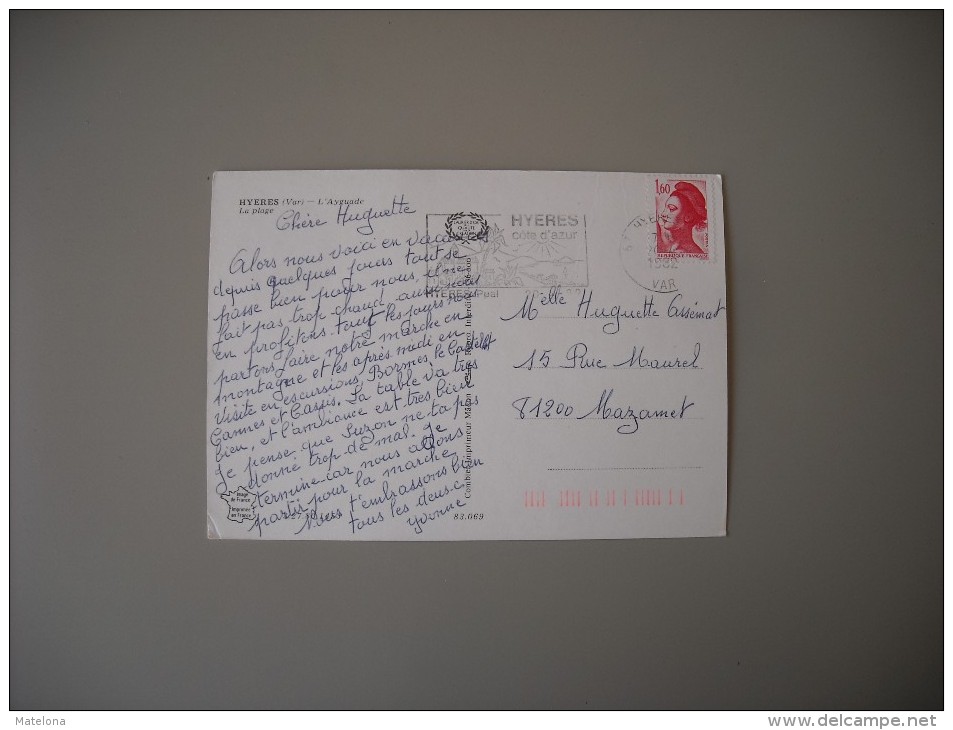 HYERES (Var) — L'Ayguade
La plage
Chère Huguette
Alors nous voici en vacances
depuis quelques jours tout se
passe bien pour nous, il ne
fait pas trop chaud aussi nous
en profitons tous les jours nous
partons faire notre marche en
montagne et les après midi en
visite en escursions, Bormes, le Castellet
Cannes et Cassis. La table va très
bien, et l'ambiance est très bien
Je pense que Suzon ne ta pas
donné trop de mal. Je
termine car nous allons
partir pour la marche
Nous t'embrassons bien
tous les deux
Yvonne
Image de France
Imprimée en France
83.069
Combier Imprimeur Mâcon
HYERES
côte d'azur
1,60
REPUBLIQUE FRANÇAISE
1982
VAR
Melle Huguette Assémat
15 Rue Maurel
81200 Mazamet
Matelona
www.delcampe.net